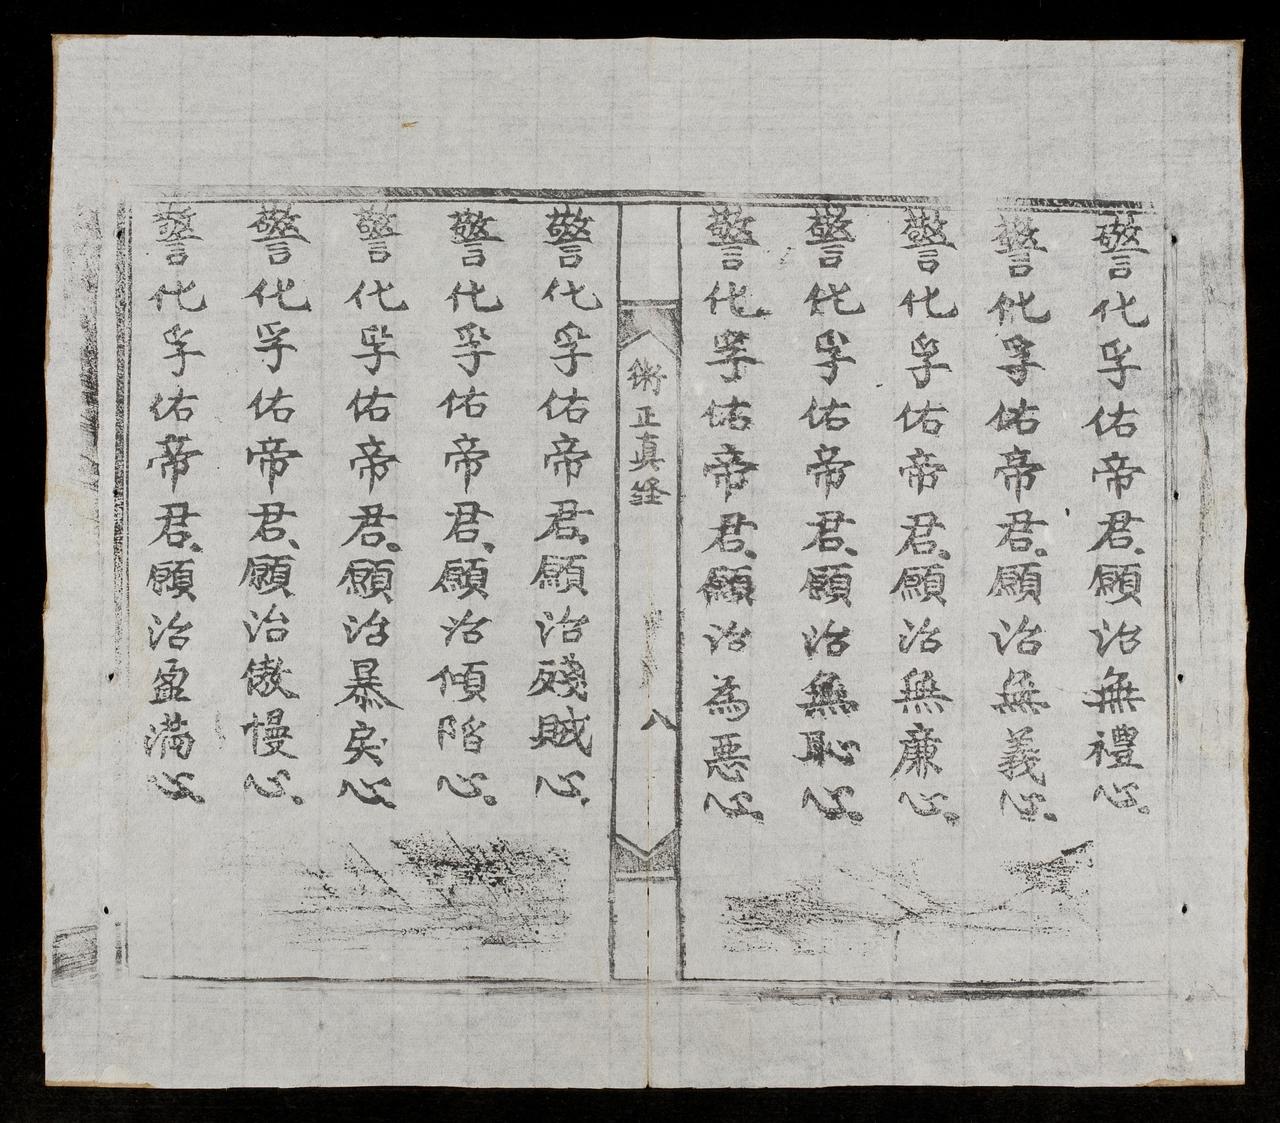 警化孚佑帝君、願治無禮心。
警化孚佑帝君、願治無義心。
警化孚佑帝君、願治無廉心。
警化孚佑帝君、願治無恥心。
警化孚佑帝君、願治為惡心。
術正真経
八
警化孚佑帝君、願治殘賊心、
警化孚佑帝君、願治傾陷心。
警化孚佑帝君、願治暴戾心。
警化孚佑帝君、願治傲慢心。
警化孚佑帝君、願治盈滿心。